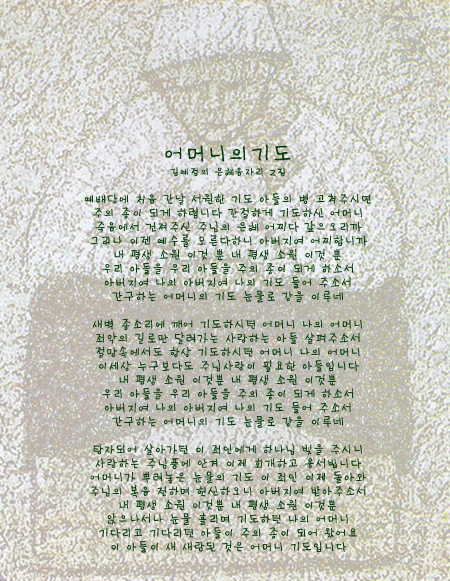 어머니의기도
김혜정의 은혜음자리 2집
예배당에 처음 간날 서원한 기도 아들의 병 고쳐주시면
주의 종이 되게 하렵니다 간절하게 기도하신 어머니
죽음에서 건져주신 주님의 은혜 어찌다 갚으오리까
그러나 이젠 예수를 모른다하니 아버지여 어찌합니까
내 평생 소원 이것 뿐 내 평생 소원 이것 뿐
우리 아들을 우리 아들을 주의 종이 되게 하소서
아버지여 나의 아버지여 나의 기도 들어 주소서
간구하는 어머니의 기도 눈물로 강을 이루네
새벽 종소리에 깨어 기도하시던 어머니 나의 어머니
죄악의 길로만 달려가는 사랑하는 아들 살펴주소서
절망속에서도 항상 기도하시던 어머니 나의 어머니
이세상 누구보다도 주님사랑이 필요한 아들입니다
내 평생 소원 이것뿐 내 평생 소원 이것뿐
우리 아들을 우리 아들을 주의 종이 되게 하소서
아버지여 나의 아버지여 나의 기도 들어 주소서
간구하는 어머니의 기도 눈물로 강을 이루네
탕자되어 살아가던 이 죄인에게 하나님 빛을 주시니
사랑하는 주님품에 안겨 이제 회개하고 용서빕니다
어머니가 뿌려놓은 눈물의 기도 이 죄인 이제 돌아와
주님의 복음 전하며 헌신하오니 아버지여 받아주소서
내 평생 소원 이것뿐 내 평생 소원 이것뿐
앉으나서나 눈물 흘리며 기도하던 나의 어머니
기다리고 기다리던 아들이 주의 종이 되어 왔어요
이 아들이 새 사람된 것은 어머니 기도입니다